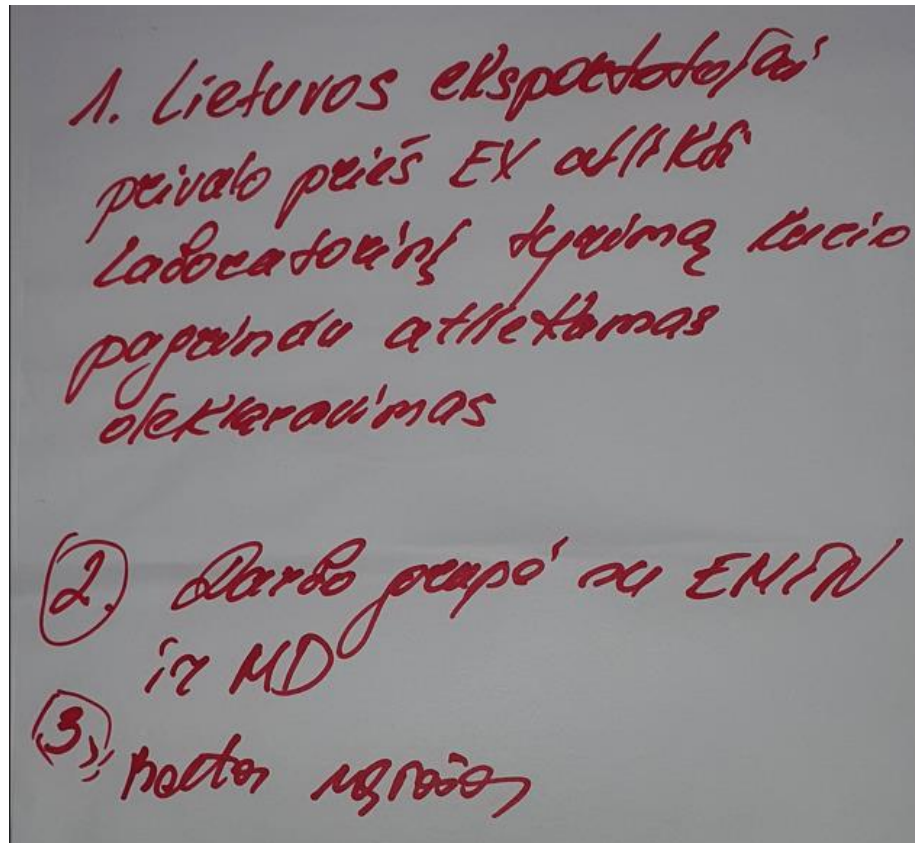 1. Lietuvos eksportotojai
privalo prieš EX atlikti
Laboratorinį tyrimą kurio
pagrindu atliekamas
deklaravimas
2. Darbo grupė su EMIN
ir MD
3.